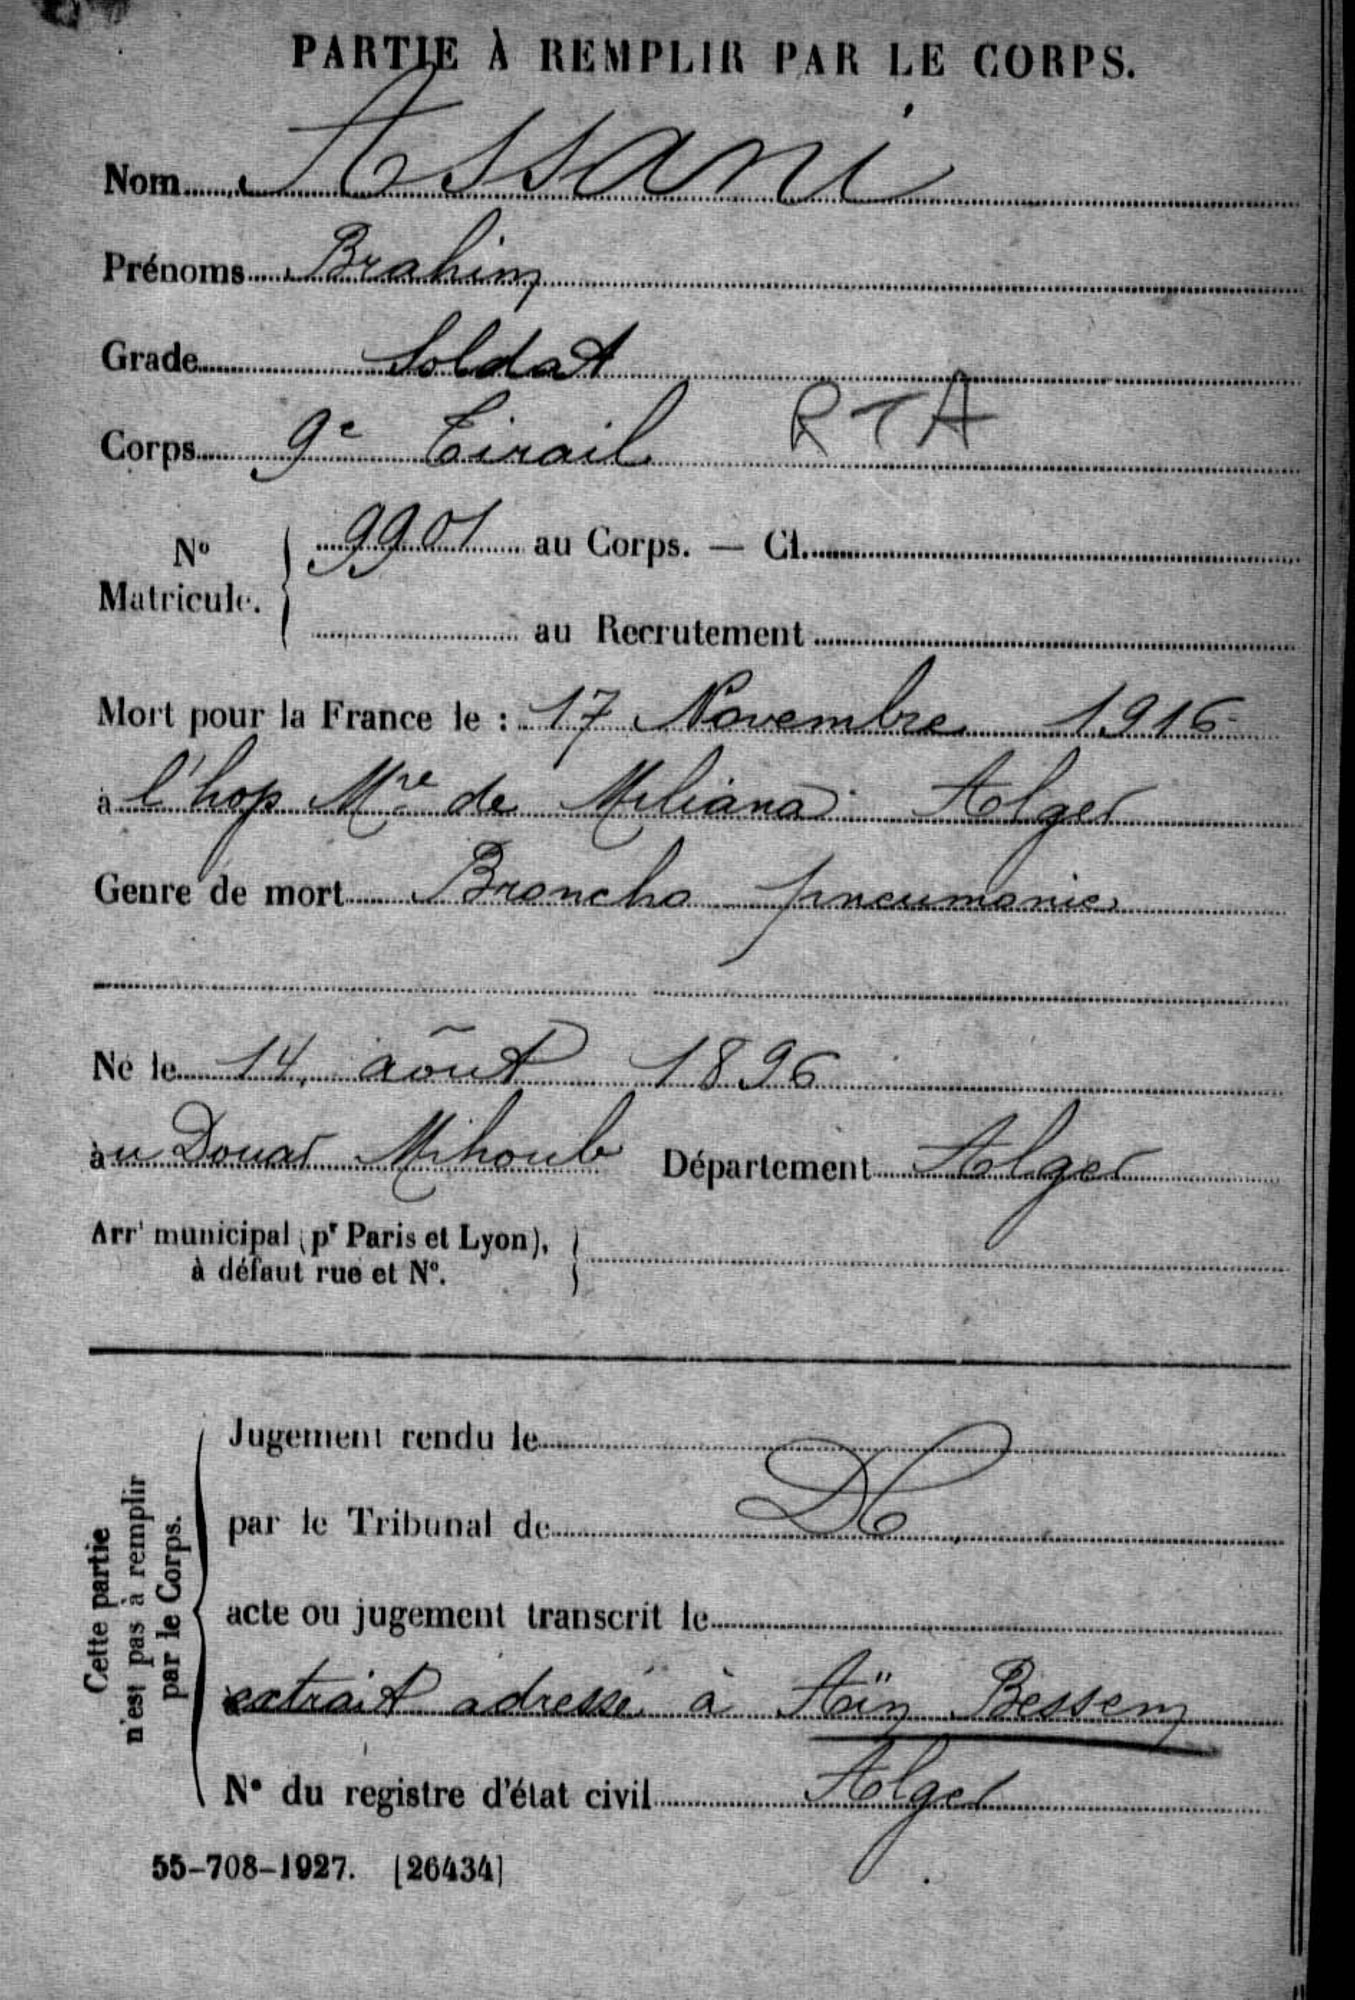 PARTIE À REMPLIR PAR LE CORPS.
Nom Assani
Prénoms Brahim
Grade Soldat
Corps 9e Tirail RTA
No Matricule. 9901 au Corps. — Cl.
au Recrutement
Mort pour la France le : 17 Novembre 1916
à l'hop Mre de Miliana Alger
Genre de mort Broncho pneumonie
Né le 14 aôut 1896
àu Douar Mihoub Département Alger
Arrt municipal (pr Paris et Lyon),
à défaut rue et No.
Cette partie
n'est pas à remplir
par le Corps.
Jugement rendu le
par le Tribunal de
acte ou jugement transcrit le
extrait adressé à Aïn Bessem
No du registre d'état civil Alger
55-708-1927. [26434]